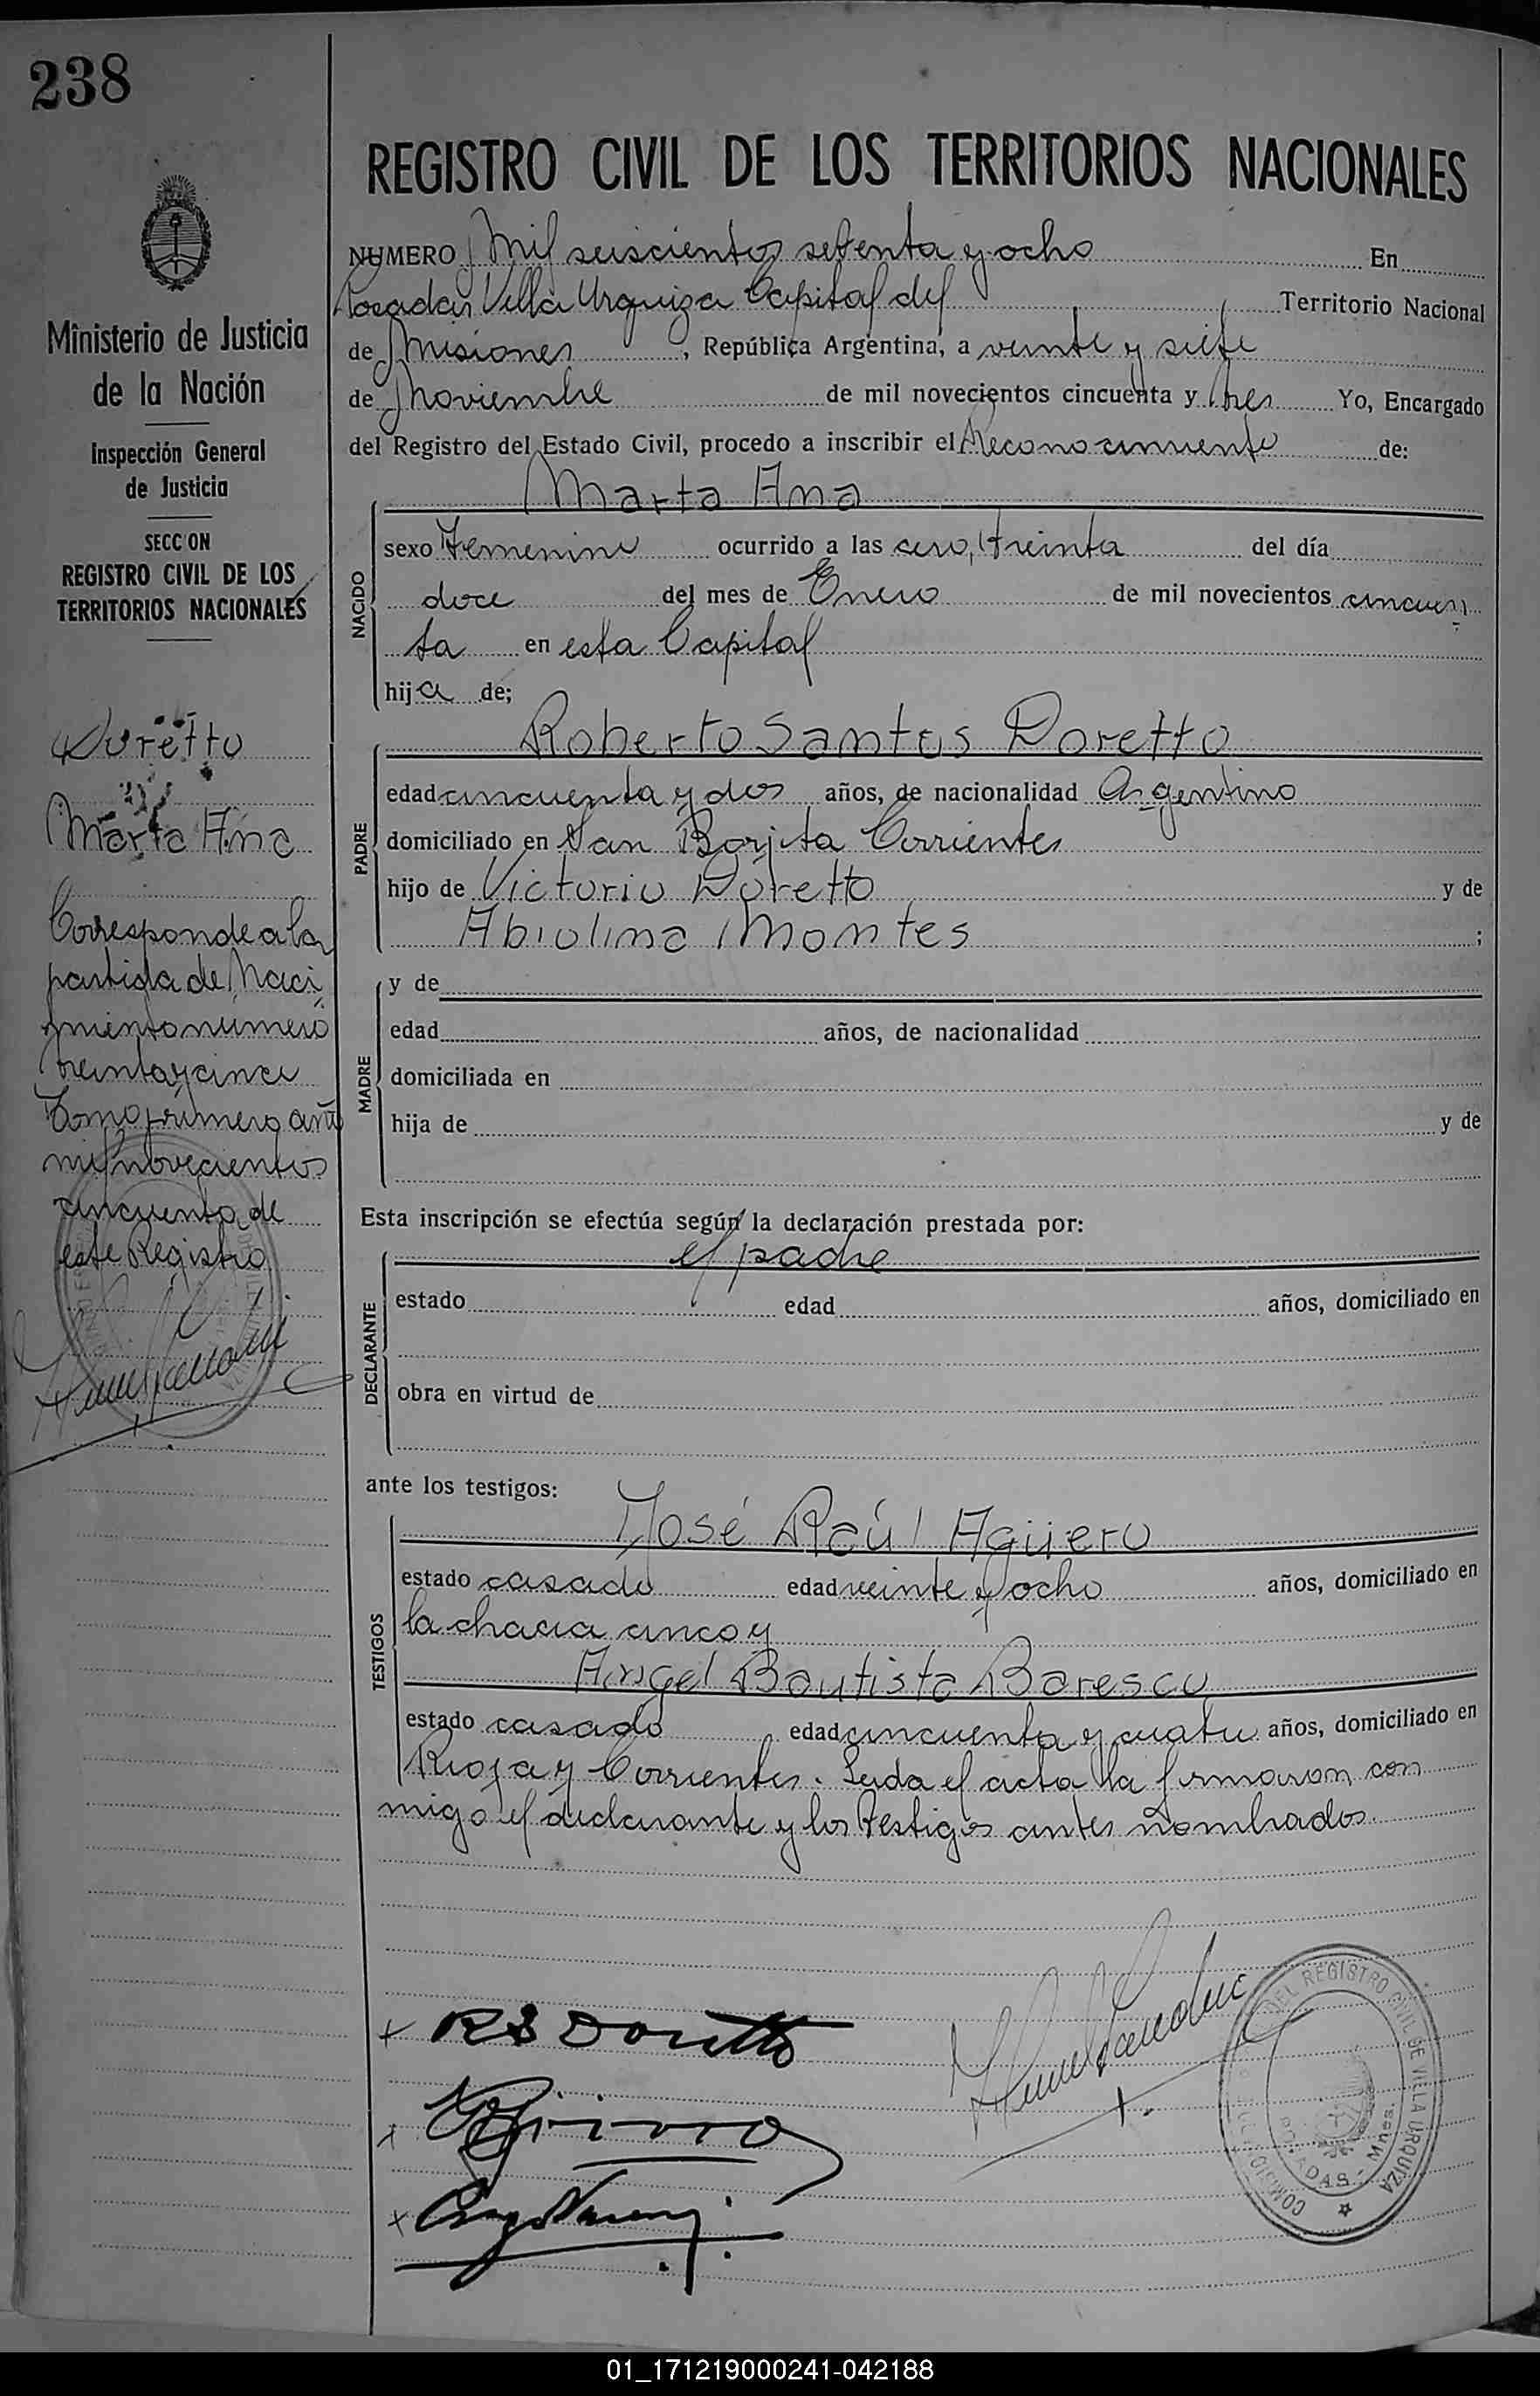 238
Ministerio de Justicia
de la Nación
Inspección General
de Justicia
SECCION
REGISTRO CIVIL DE LOS
TERRITORIOS NACIONALES
Doretto
Marta Ana
Corresponde a la
partida de Naci
miento numero
treinta y cinco
Tomo primero año
mil novecientos
cincuenta de
este Registro
REGISTRO CIVIL DE LOS TERRITORIOS NACIONALES
NUMERO Mil seiscientos setenta y ocho En
Posadas Villa Urquiza Capital del Territorio Nacional
de Misiones, República Argentina, a veinte y siete
de Noviembre de mil novecientos cincuenta y tres Yo, Encargado
del Registro del Estado Civil, procedo a inscribir el Reconocimiento de:
NACIDO
Marta Ana
sexo Femenino ocurrido a las cero, treinta del día
doce del mes de Enero de mil novecientos cincuen
ta en esta Capital
hija de;
PADRE
Roberto Santos Doretto
edad cincuenta y dos años, de nacionalidad Argentino
domiciliado en San Borjita Corrientes
hijo de Victorio Doretto y de
Abiolina Montes ;
MADRE
y de
edad años, de nacionalidad
domiciliada en
hija de y de
Esta inscripción se efectúa según la declaración prestada por:
DECLARANTE
el padre
estado edad años, domiciliado en
obra en virtud de
ante los testigos:
TESTIGOS
José Raúl Agüero
estado casado edad veinte y ocho años, domiciliado en
la chacra cinco y
Angel Bautista Baresco
estado casado edad cincuenta y cuatro años, domiciliado en
Rioja y Corrientes. Leida el acta la firmaron con
migo el declarante y los testigos antes nombrados.
x R S Doretto
x
x
DEL REGISTRO CIVIL DE VILLA URQUIZA
POSADAS - Mnes.
01_171219000241-042188